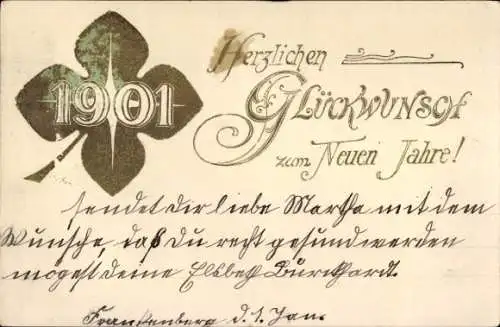 1901
Herzlichen
Glückwunsch
zum Neuen Jahre!
sendet dir liebe Martha mit dem
Wunsche, daß Du recht gesund werden
mögest deine Elsbeth Burkhardt.
Frankenberg d. 1. Jan.